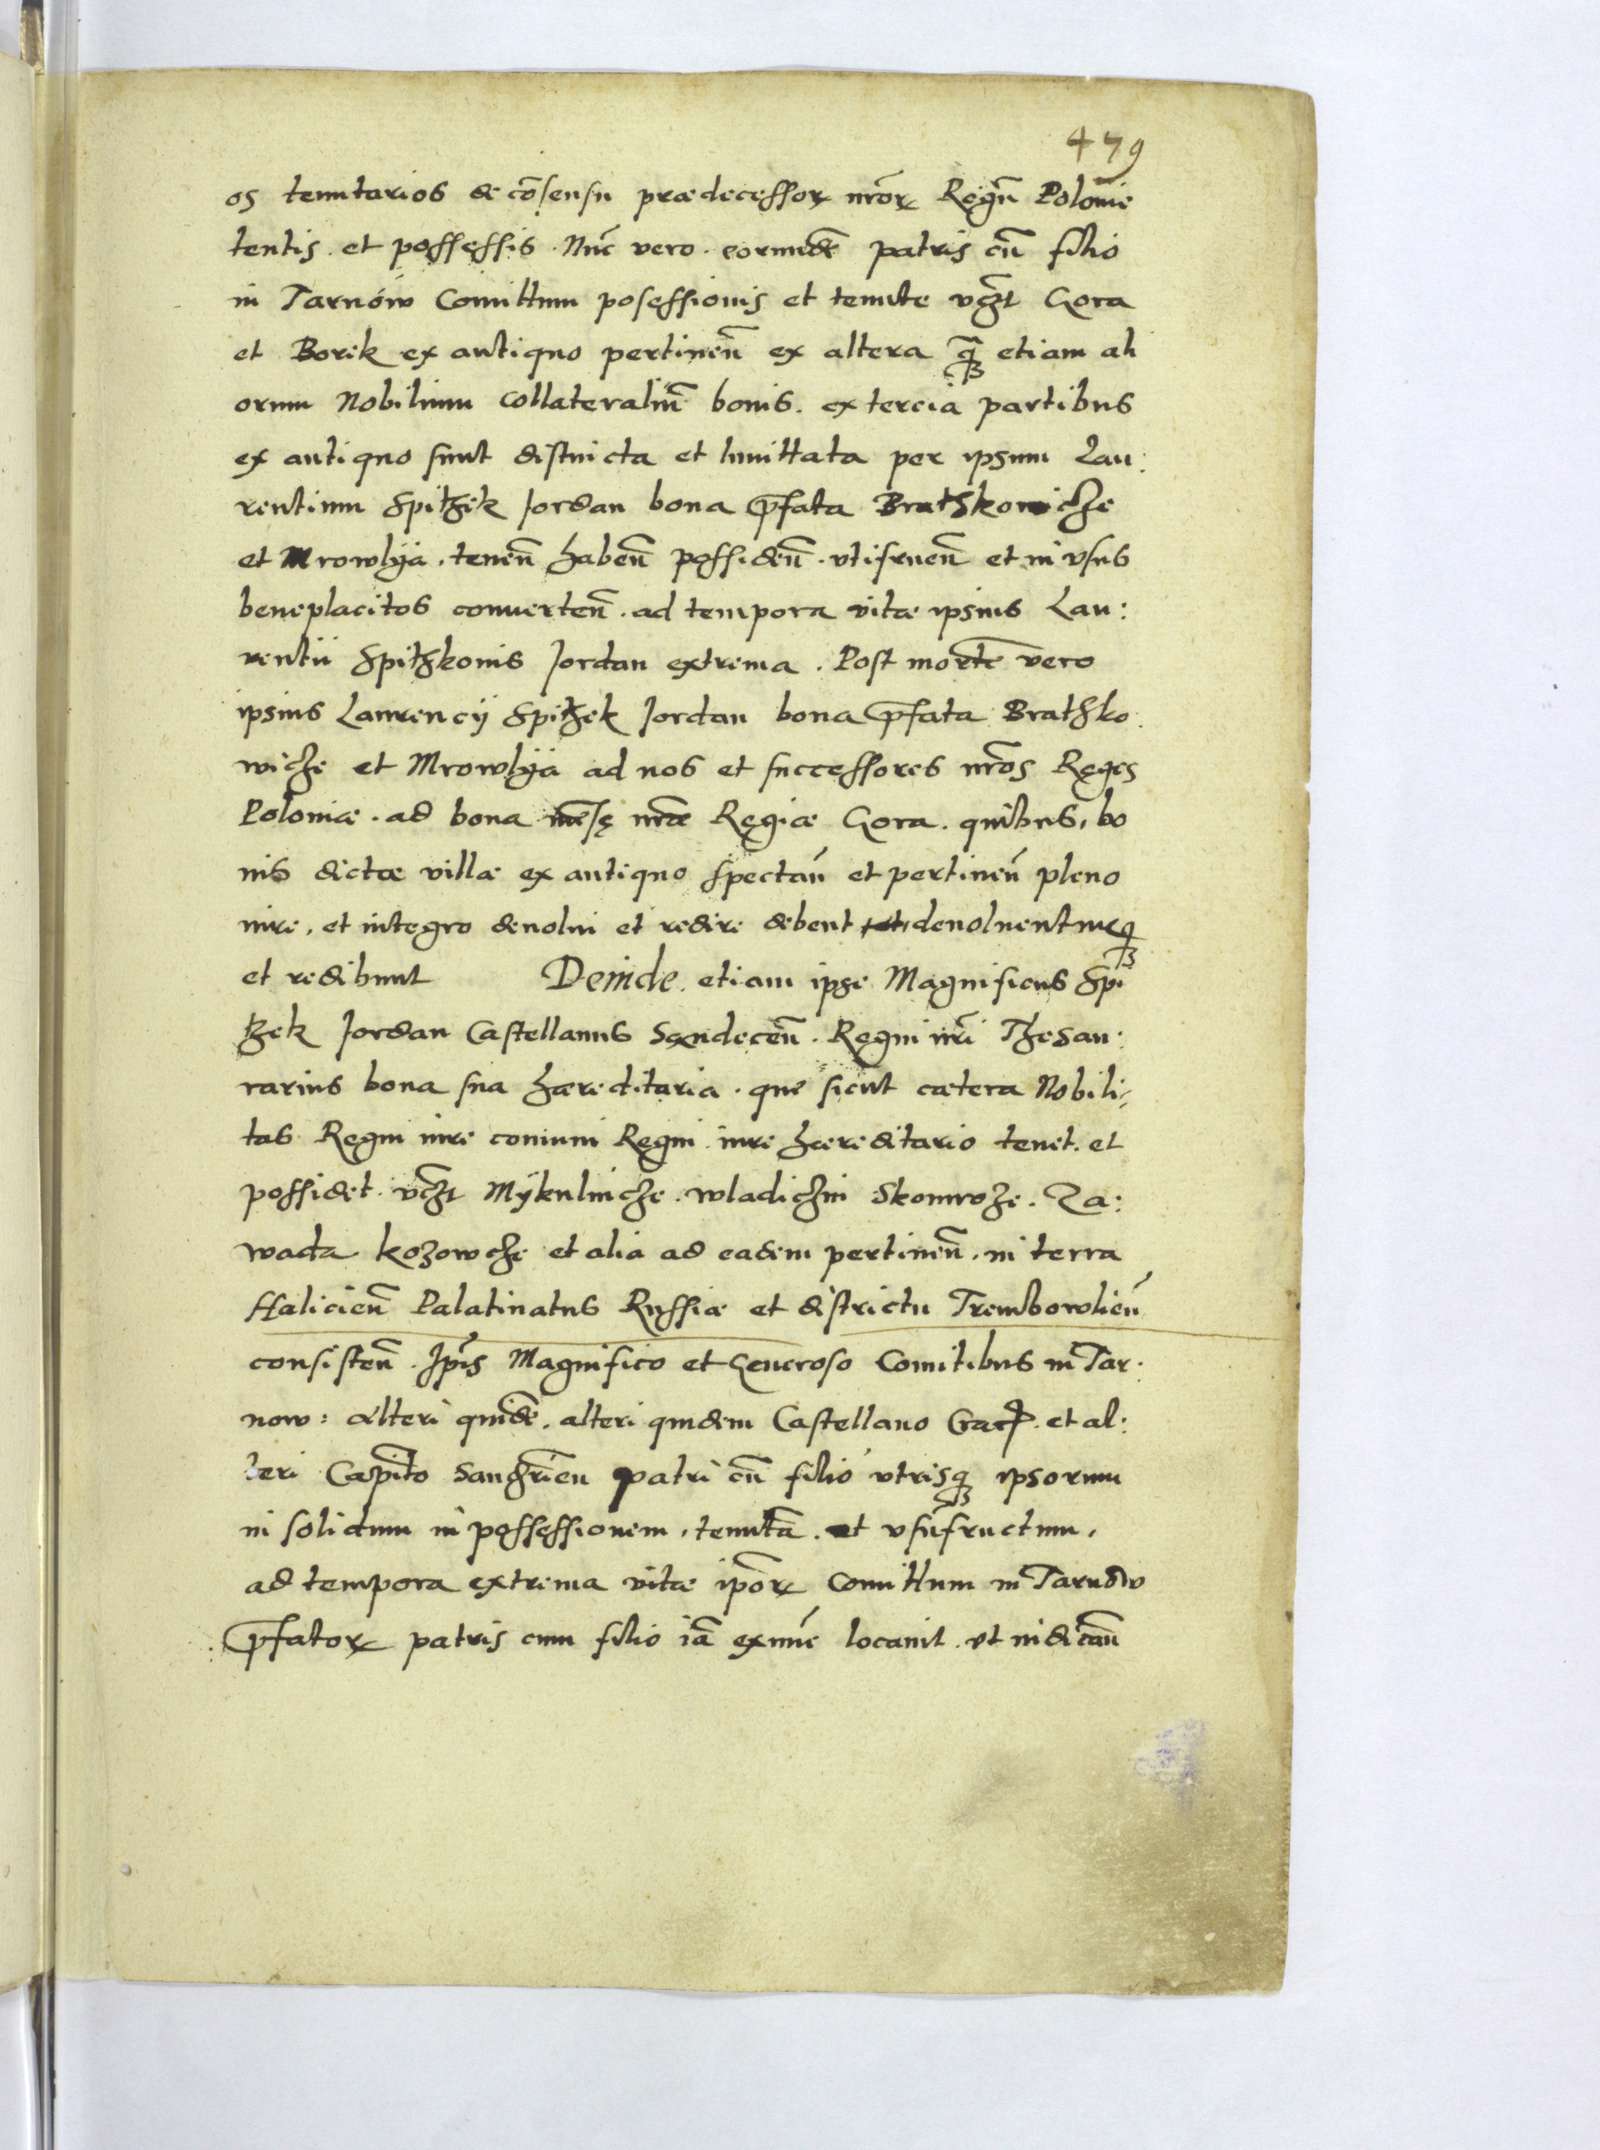 479
os tenutarios de cõsensu prædecessorꝝ nrõrꝝ Regũ Polonie
tentis. et possessis. Nũc vero. eorundẽ patris cũ filio
in Tarnów Comittum posessionis et tenute vcꝫt Gora
et Borek ex antiquo pertineñ ex altera q̃ꝫ etiam ali
orum Nobilium collateraliũ bonis. ex tercia partibus
ex antiquo sunt distincta et limittata per ipsum Lau:
rentium Spithek Jordan bona p̃fata Brathkowicze
et Mrowlya. teneñ habeñ possideñ. vtifrueñ et in vsus
beneplacitos converteñ. ad tempora vitæ ipsius Lau:
rentii Spithkonis Jordan extrema. Post mortẽ vero
ipsius Laurencÿ Spithek Jordan bona p̃fata Brathko
wicze et Mrowlÿa ad nos et successores nr̃os Reges
Poloniæ. ad bona mẽsę nr̃æ Regiæ Gora. quibus, bo
nis dictæ villæ ex antiquo spectañ et pertineñ pleno
iure, et integro deuolui et redire debent, deuoluenturqꝫ
et redibunt Deinde. etiam ipse Magnificus Spi
thek Jordan Castellanus Sandeceñ. Regni nr̃i Thesau:
rarius bona sua hæreditaria. que sicut cætera Nobili-
tas Regni iure comuni Regni iure hæreditario tenet. et
possidet. vcꝫt Mÿkulincze. Wladiczin Skomrohe. Za:
wada Kozowcze et alia ad eadem pertineñ. in terra
Halicieñ Palatinatus Russiæ et districtu Trembowlieñ
consisteñ. Ip̃is Magnifico et Generoso Comitibus in Tar:
now: alteri quidẽ. alteri quidem Castellano Crac. et al:
teri Capit̃o Sandr̃ien patri cũ filio vtrisqꝫ ipsorum
in solidum in possessionem, tenutã. et vsũfructum,
ad tempora extrema vitæ ip̃orꝝ Comittum in Tarnów
p̃fatorꝝ patris cum filio iã exnũc locauit. vt indicañ